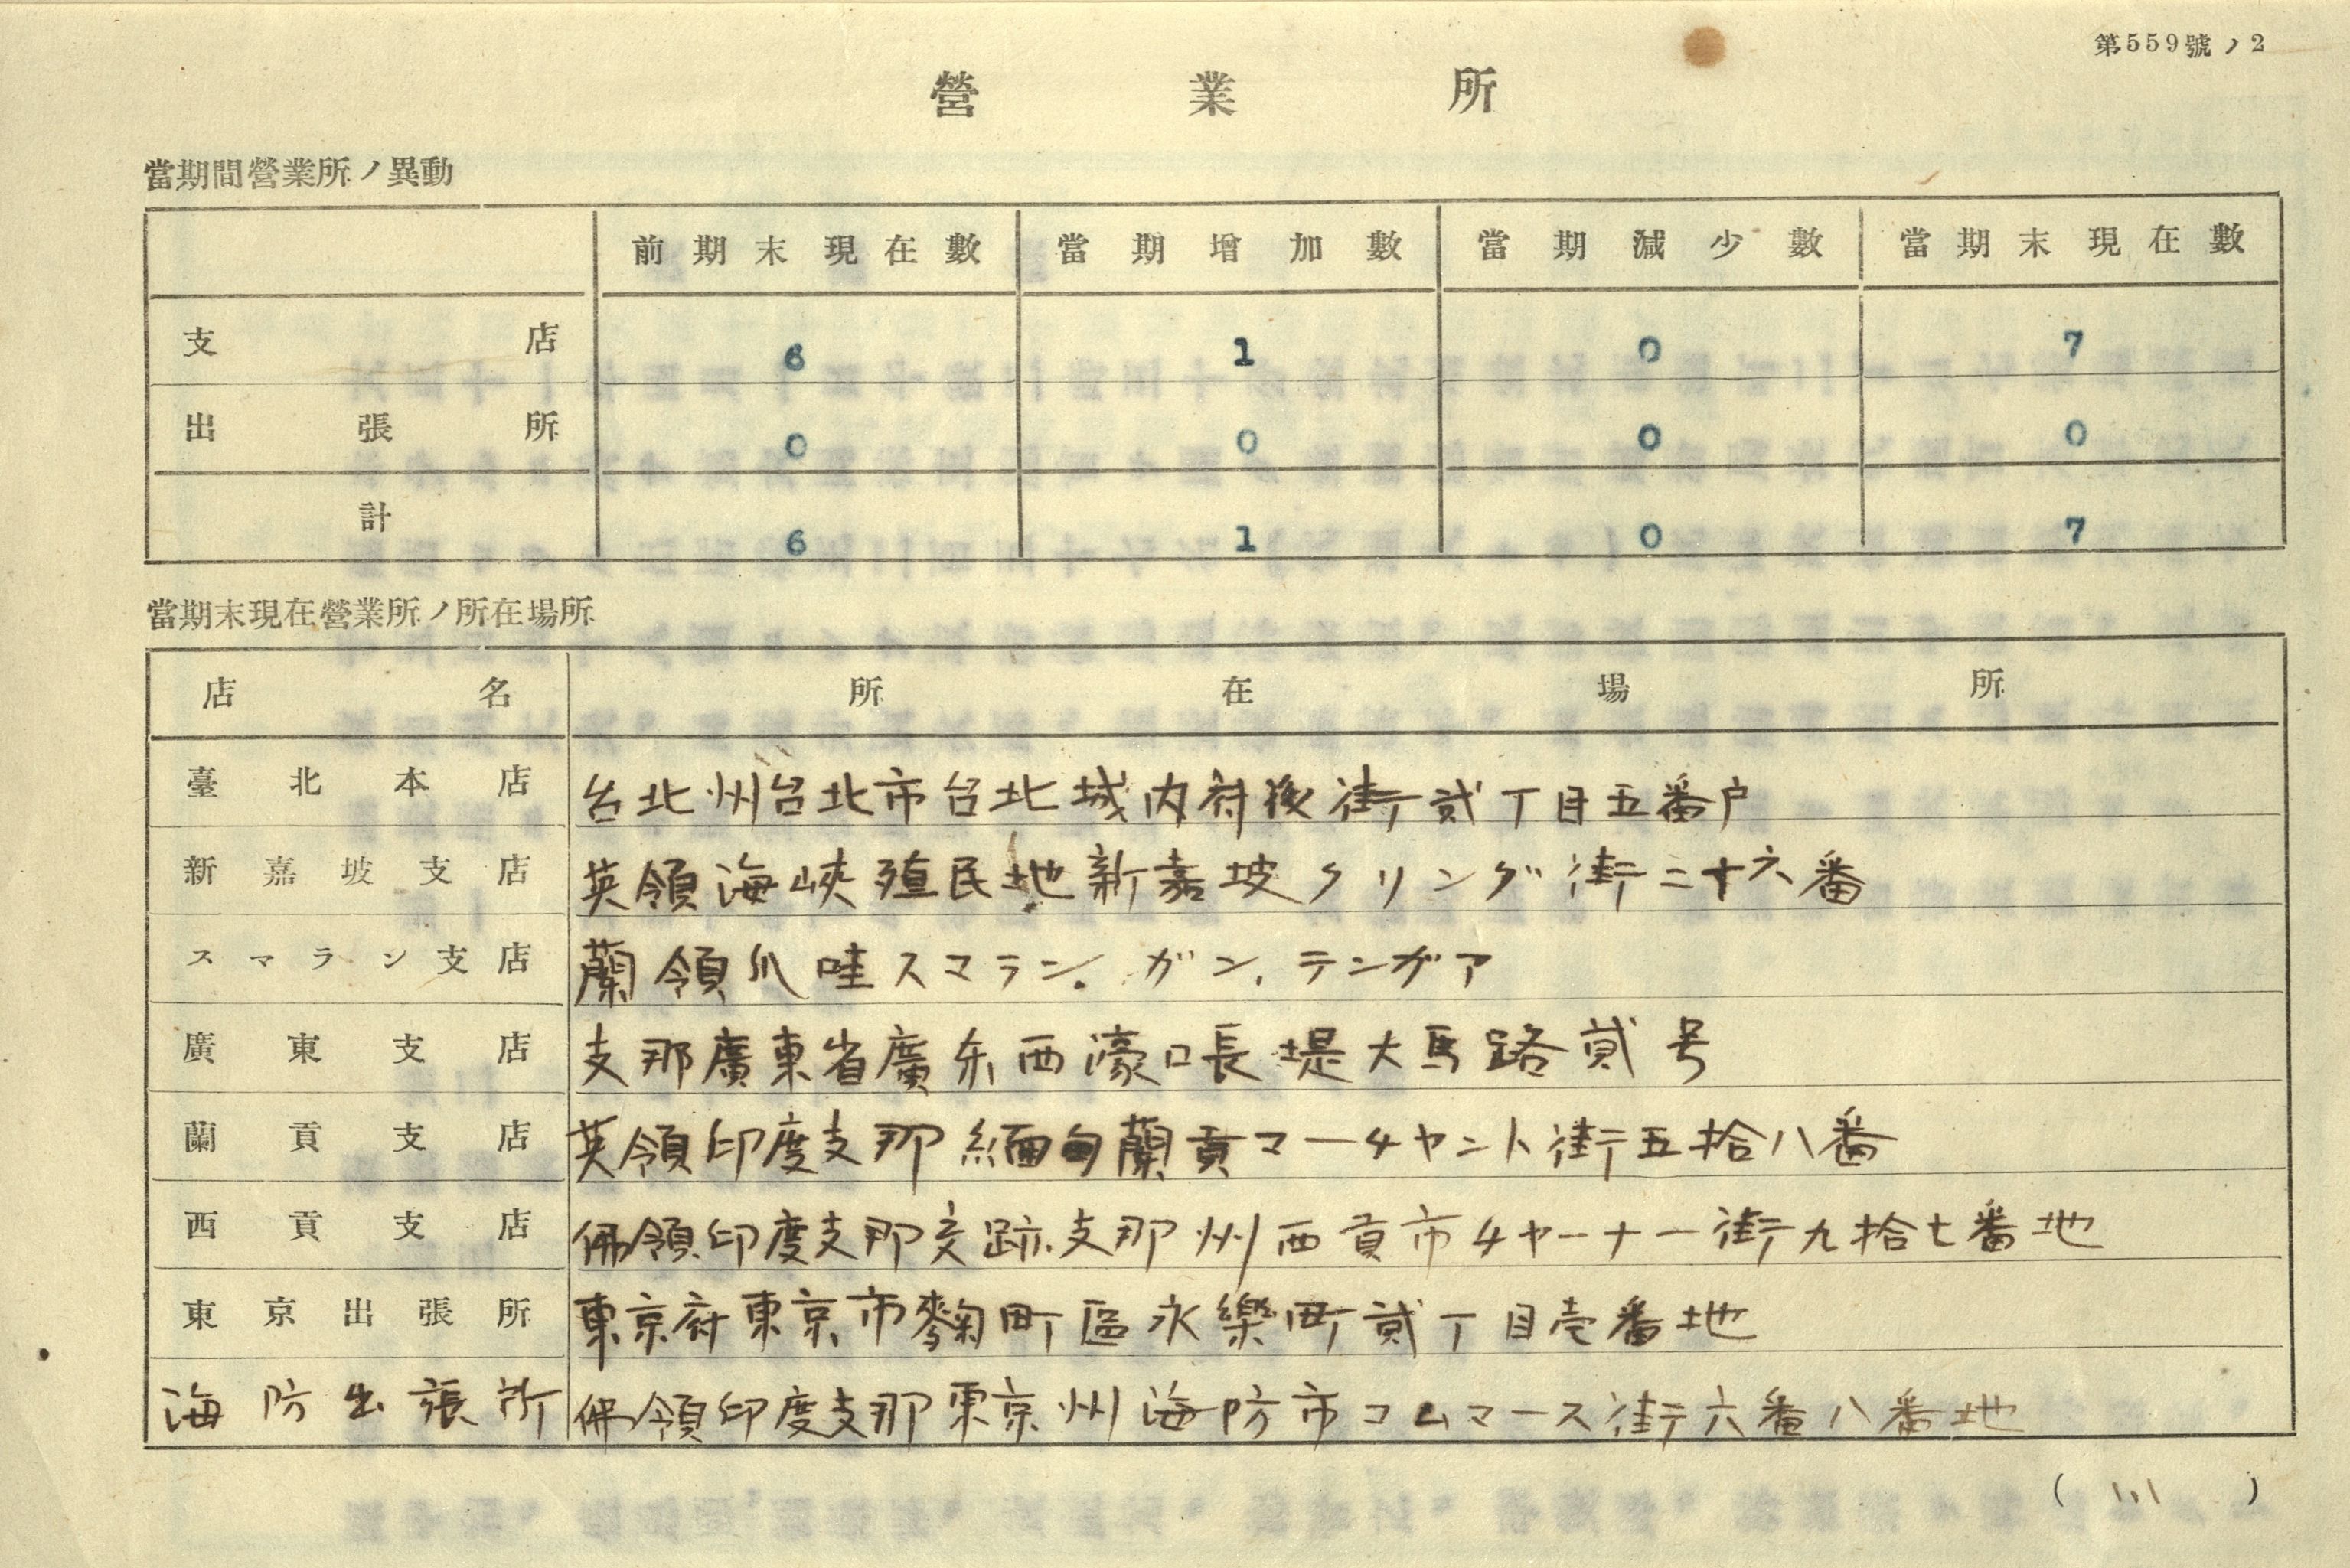 第559號ノ2
營業所
當期間營業所ノ異動
前期末現在數 當期增加數 當期減少數 當期末現在數
支店 6 1 0 7
出張所 0 0 0 0
計 6 1 0 7
當期末現在營業所ノ所在場所
店名 所在場所
臺北本店 台北州台北市台北城内府後街貳丁目五番戸
新嘉坡支店 英領海峽殖民地新嘉坡クリング街二十六番
スマラン支店 蘭領爪哇スマラン.ガン.テンガア
廣東支店 支那廣東省廣东西濠口長堤大馬路貳号
蘭貢支店 英領印度支那緬甸蘭貢マーチヤント街五拾八番
西貢支店 佛領印度支那交趾支那州西貢市チヤーナー街九拾七番地
東京出張所 東京府東京市麴町區永樂町貳丁目壱番地
海防出張所 佛領印度支那東京州海防市コムマース街六番八番地
( )